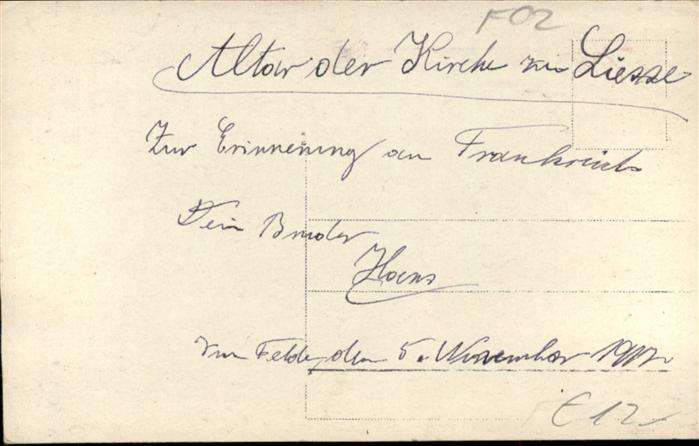 F02
Altar der Kirche zu Liesse
Zur Erinnerung an Frankreich
Dein Bruder
Hans
Im Felde, den 5. November 1917.
E 12